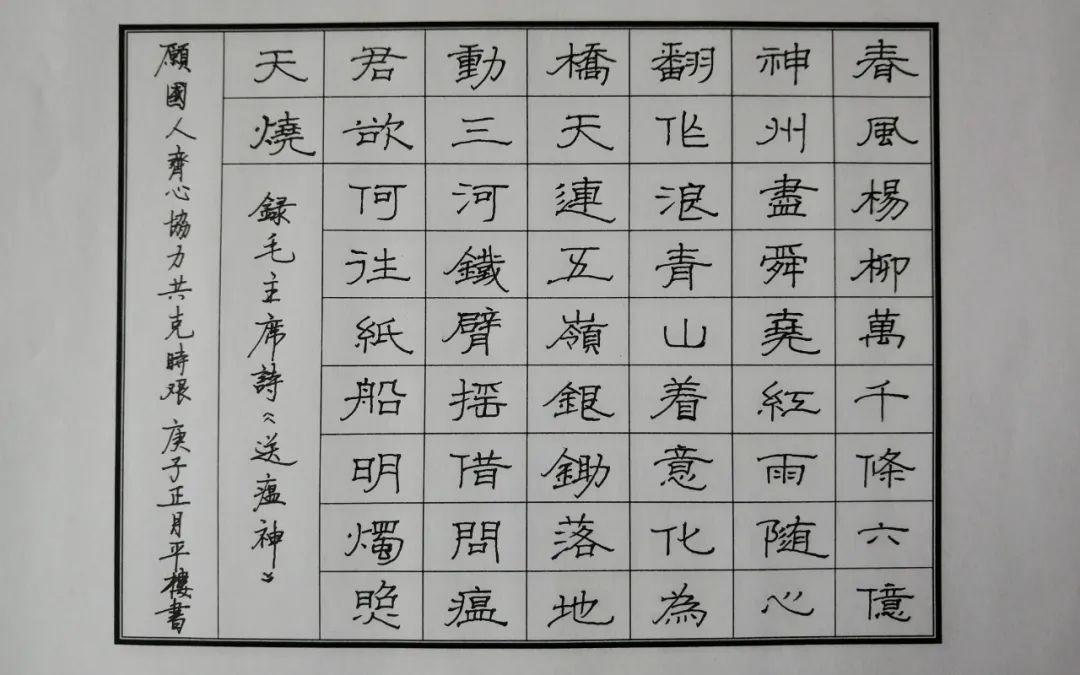 春風楊柳萬千條六億
神州盡舜堯紅雨随心
翻作浪青山着意化為
橋天連五嶺銀鋤落地
動三河鐵臂摇借問瘟
君欲何往紙船明燭照
天燒
録毛主席詩《送瘟神》
願國人齊心協力共克時艰 庚子正月平樓書